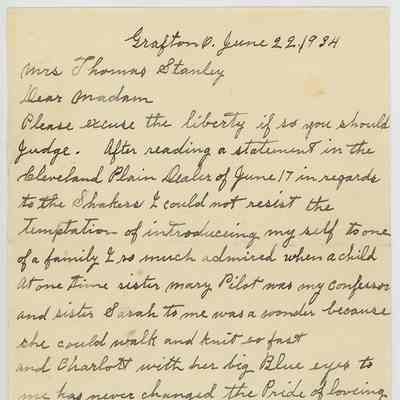 Grafton O. June 22, 1934
Mrs Thomas Stanley
Dear Madam
Please excuse the liberty if so you should
Judge. After reading a statement in the
Cleveland Plain Dealer of June 17 in regards
to the Shakers I could not resist the
temptation of introduceing my self to one
of a family I so much admired when a child
At one time sister mary Pilot was my confessor
and sister Sarah to me was a wonder because
she could walk and knit so fast
and Charlott with her big Blue eyes to
me has never changed the Pride of loveing